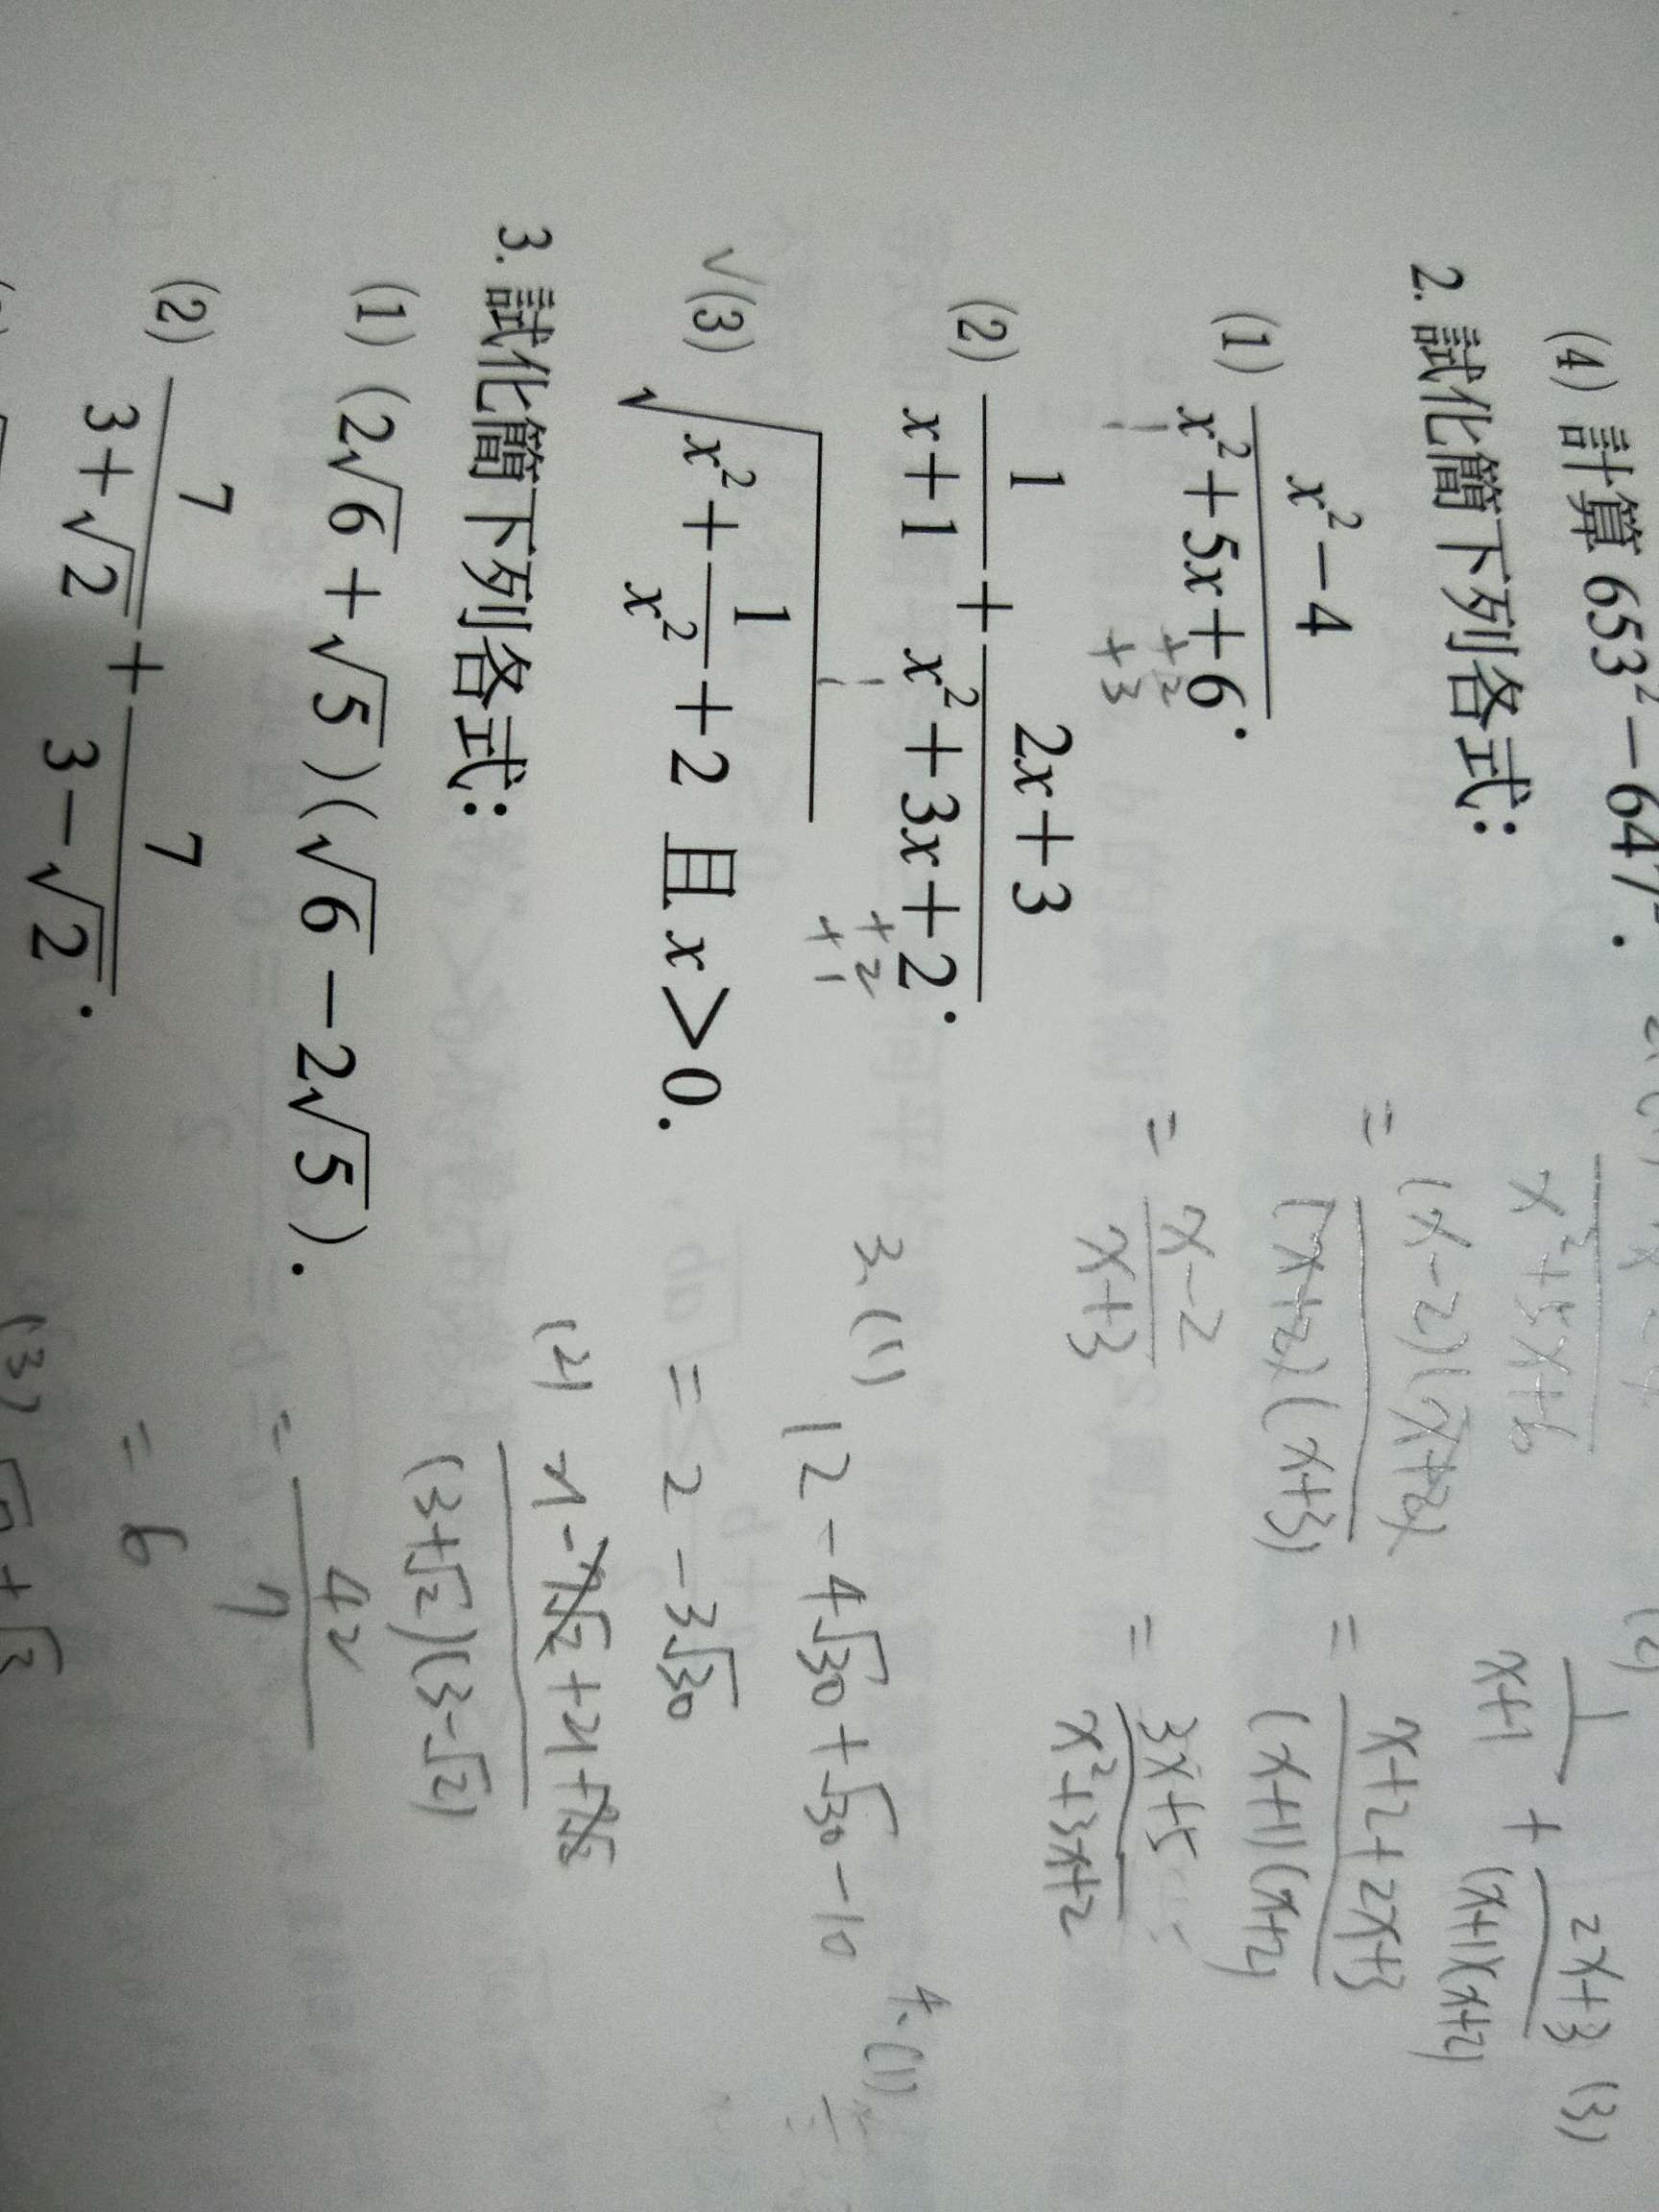 (4) 計算 653² − 647².
2. 試化簡下列各式：
(1) (x² − 4)/(x² + 5x + 6).
+2
+3
(2) 1/(x + 1) + (2x + 3)/(x² + 3x + 2).
+2
+1
√(3) √(x² + 1/x² + 2) 且 x > 0.
3. 試化簡下列各式：
(1) (2√6 + √5)(√6 − 2√5).
(2) 7/(3 + √2) + 7/(3 − √2).
x² + 5x + 6
= (x − 2)(x + 2)/(x + 2)(x + 3)
= (x − 2)/(x + 3)
(2) 1/(x+1) + (2x+3)/(x+1)(x+2)
= (x+2+2x+3)/(x+1)(x+2)
= (3x+5)/(x²+3x+2)
(3)
3. (1) 12 − 4√30 + √30 − 10
= 2 − 3√30
(2) (21 − 7√2 + 21 + 7√2)/(3+√2)(3−√2)
= 42/7
= 6
4. (1)
(3)